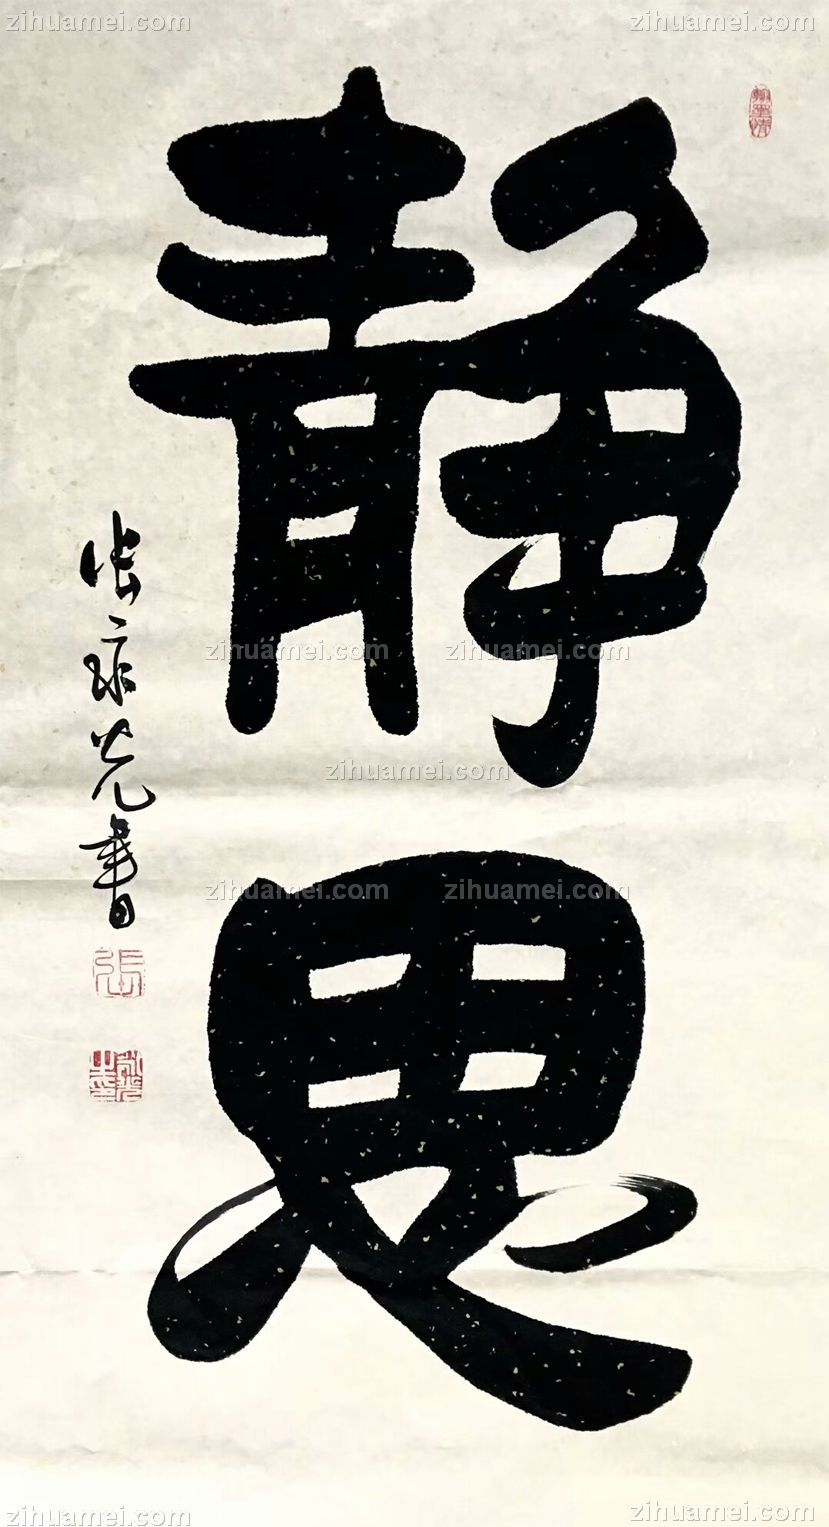 zihuamei.com zihuamei.com
静思
张永光書
張
zihuamei.com zihuamei.com
zihuamei.com
zihuamei.com zihuamei.com
zihuamei.com zihuamei.com